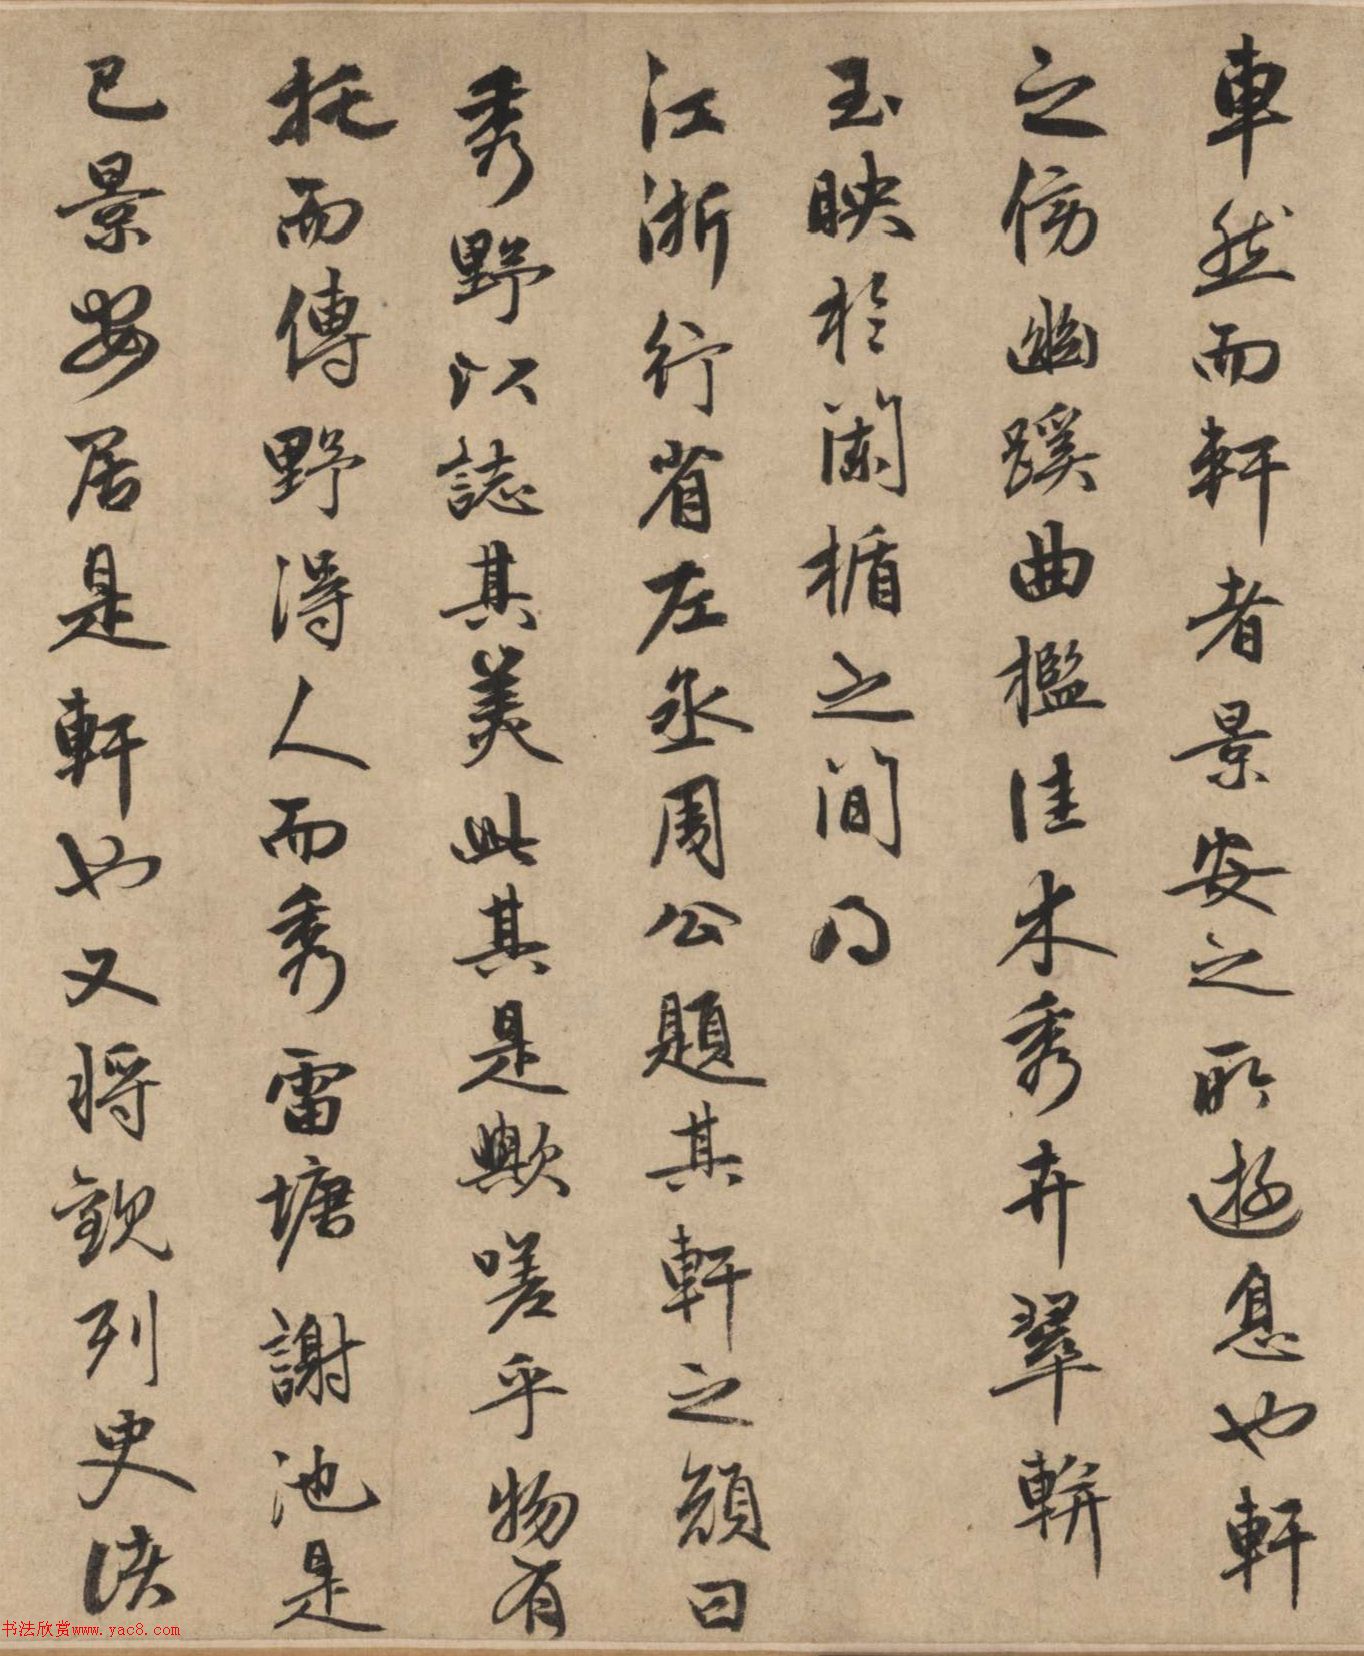 車然而軒者景安之所遊息也軒
之傍幽蹊曲檻佳木秀卉翠軿
玉映於闌楯之間乃
江浙行省左丞周公題其軒之顔曰
秀野以誌其美此其是歟嗟乎物有
托而傳野得人而秀雷塘謝池是
已景安居是軒也又將欲列史諸
书法欣赏www.yac8.com